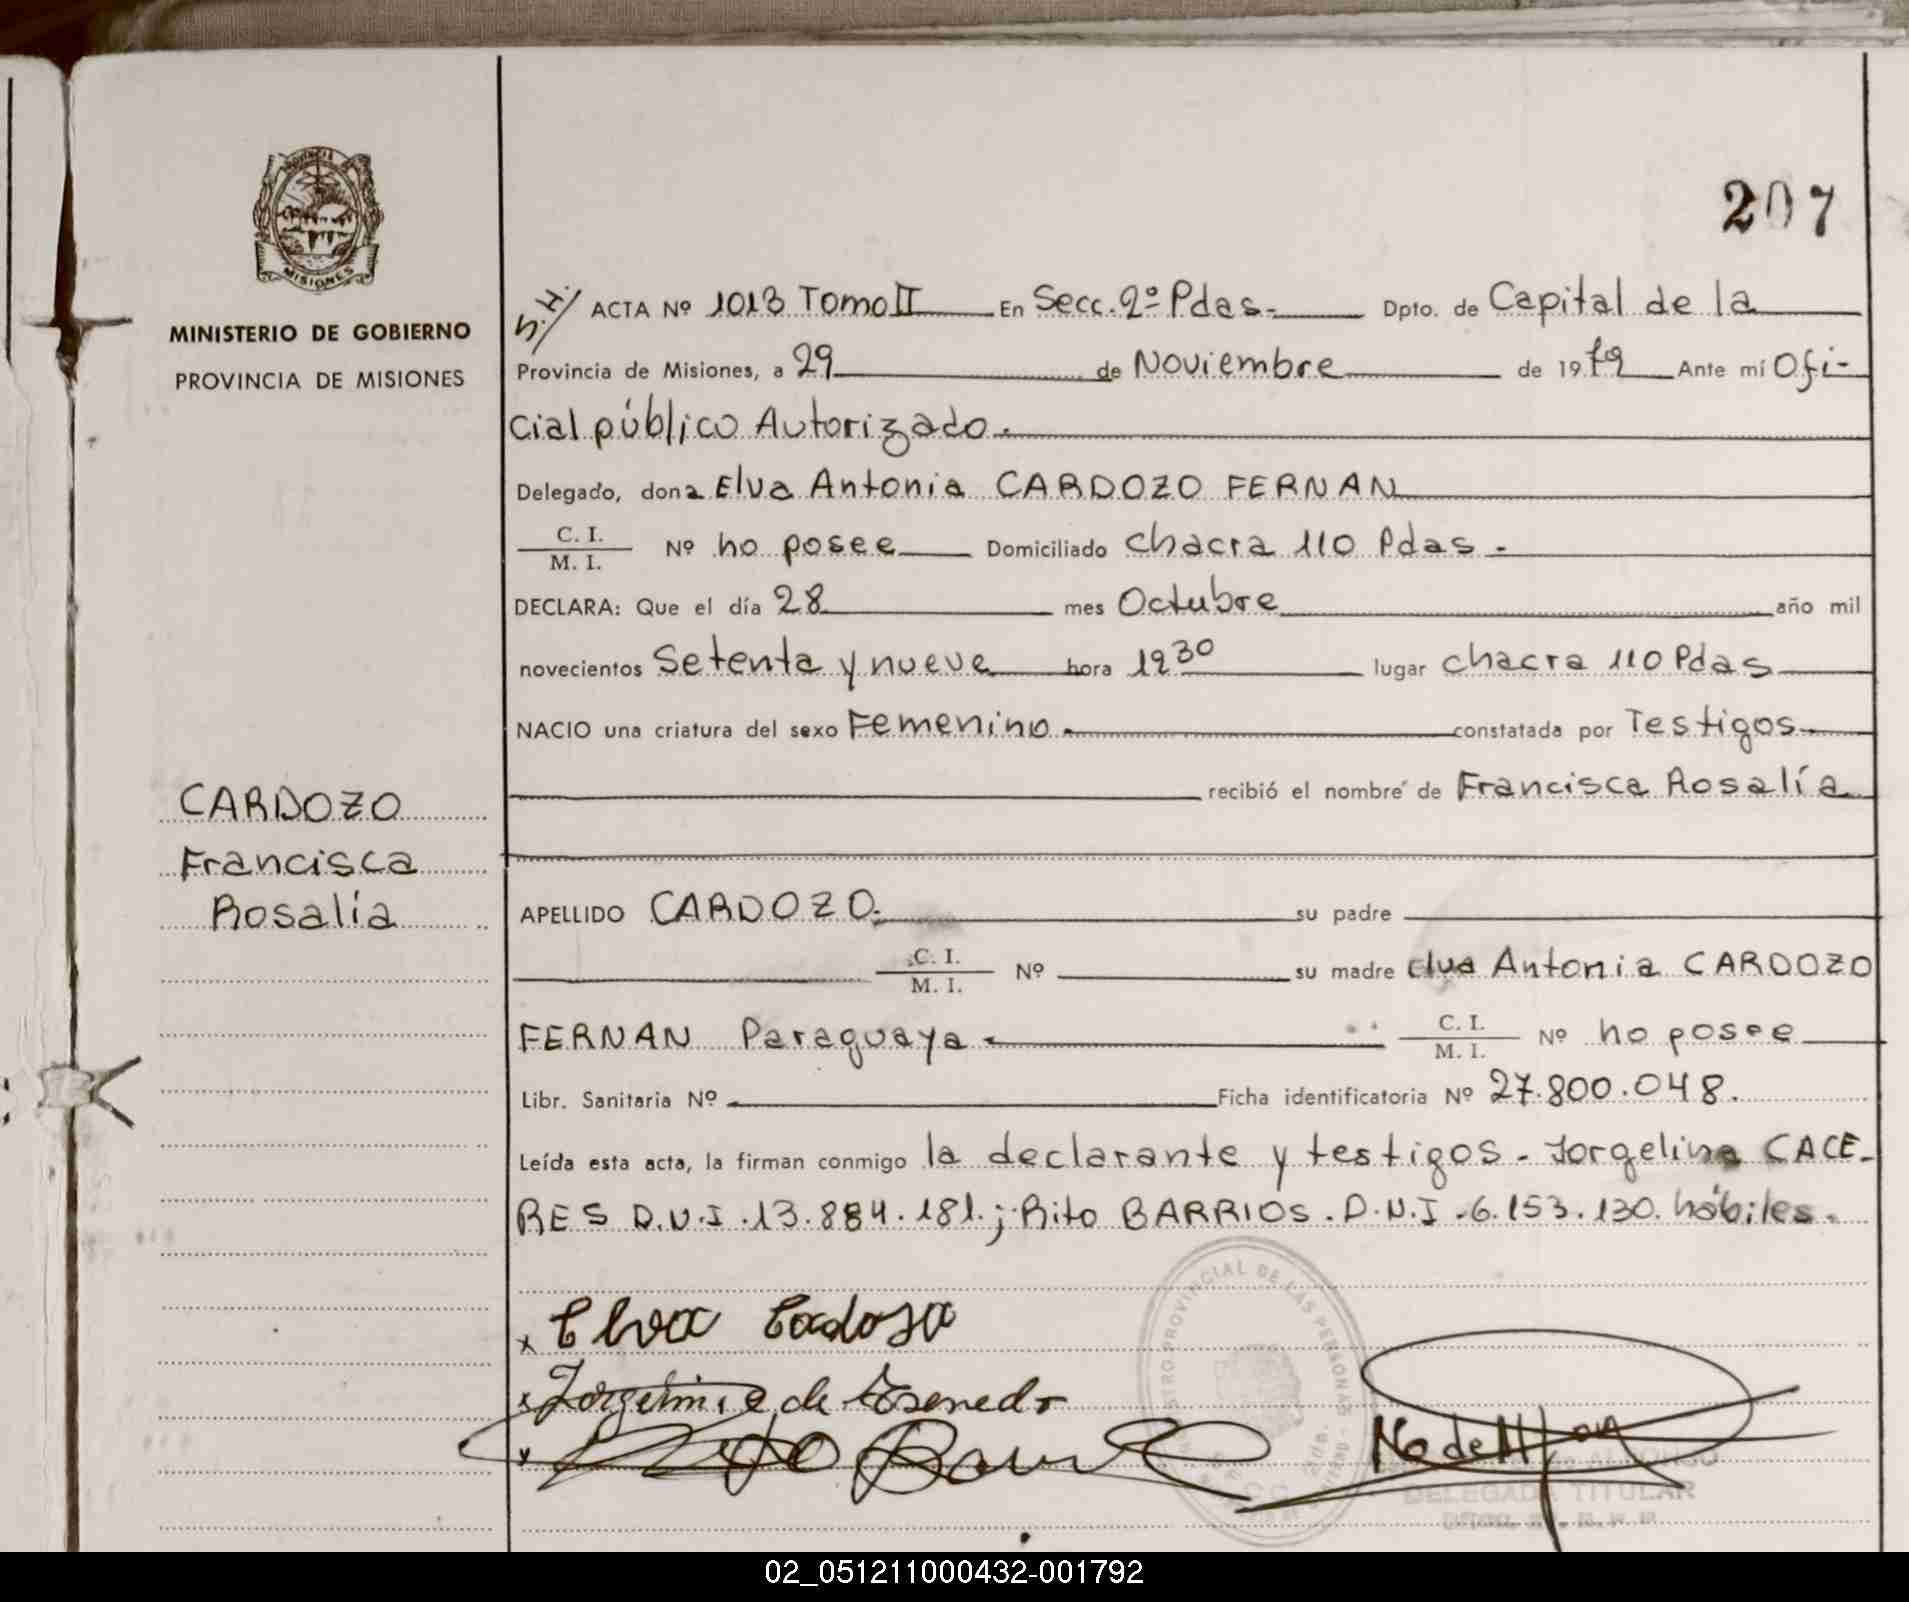 207
MISIONES
MINISTERIO DE GOBIERNO
PROVINCIA DE MISIONES
CARDOZO
Francisca
Rosalía
S.H/ ACTA Nº 1013 Tomo II En Secc. 2º Pdas. Dpto. de Capital de la
Provincia de Misiones, a 29 de Noviembre de 1979 Ante mí Ofi-
cial público Autorizado.
Delegado, dona Elva Antonia CARDOZO FERNAN
C. I.
M. I. Nº no posee Domiciliado chacra 110 Pdas.
DECLARA: Que el día 28 mes Octubre año mil
novecientos Setenta y nueve hora 1930 lugar chacra 110 Pdas
NACIO una criatura del sexo Femenino. constatada por Testigos
recibió el nombre de Francisca Rosalía
APELLIDO CARDOZO. su padre
C. I.
M. I. Nº su madre Elva Antonia CARDOZO
FERNAN Paraguaya C. I.
M. I. Nº no posee
Libr. Sanitaria Nº Ficha identificatoria Nº 27.800.048.
Leída esta acta, la firman conmigo la declarante y testigos. Jorgelina CACE-
RES D.N.I. 13.884.181.; Rito BARRIOS. D.N.I. 6.153.130. hábiles.
x Elva Cadosa
x Jorgelina C de
x Rito
DELEGADA TITULAR
02_051211000432-001792